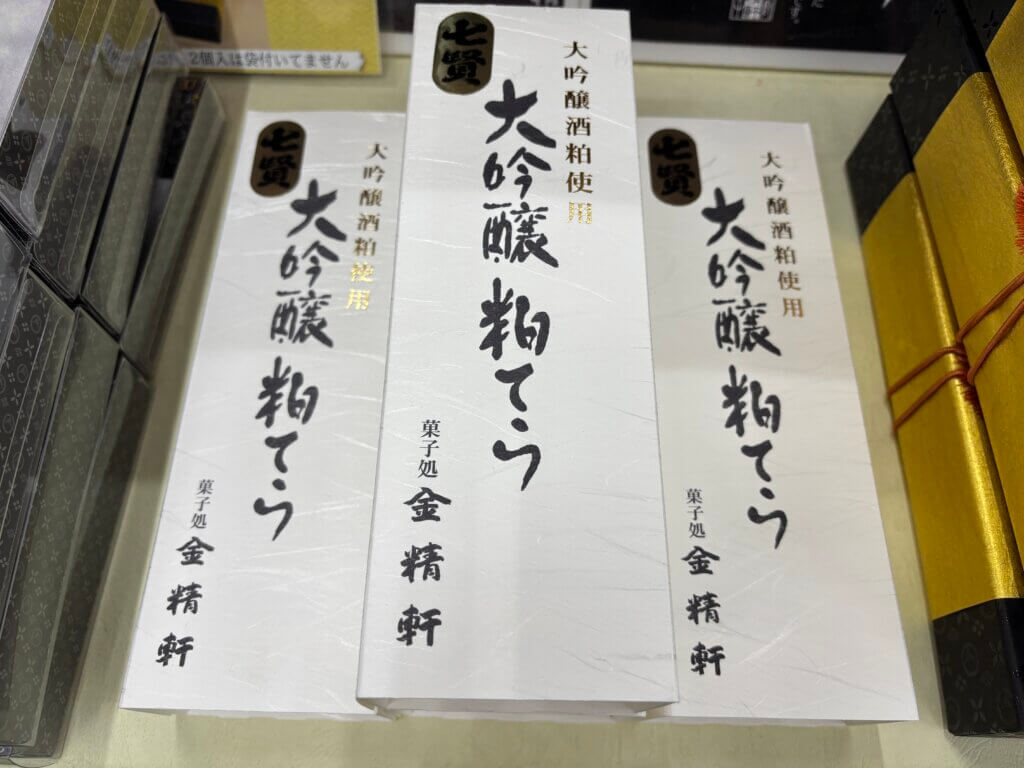 2個入は袋付いてません
です。
七賢
大吟醸酒粕使用
大吟醸粕てら
菓子処
金精軒
七賢
大吟醸酒粕使用
大吟醸粕てら
菓子処
金精軒
七賢
大吟醸酒粕使用
大吟醸粕てら
菓子処
金精軒